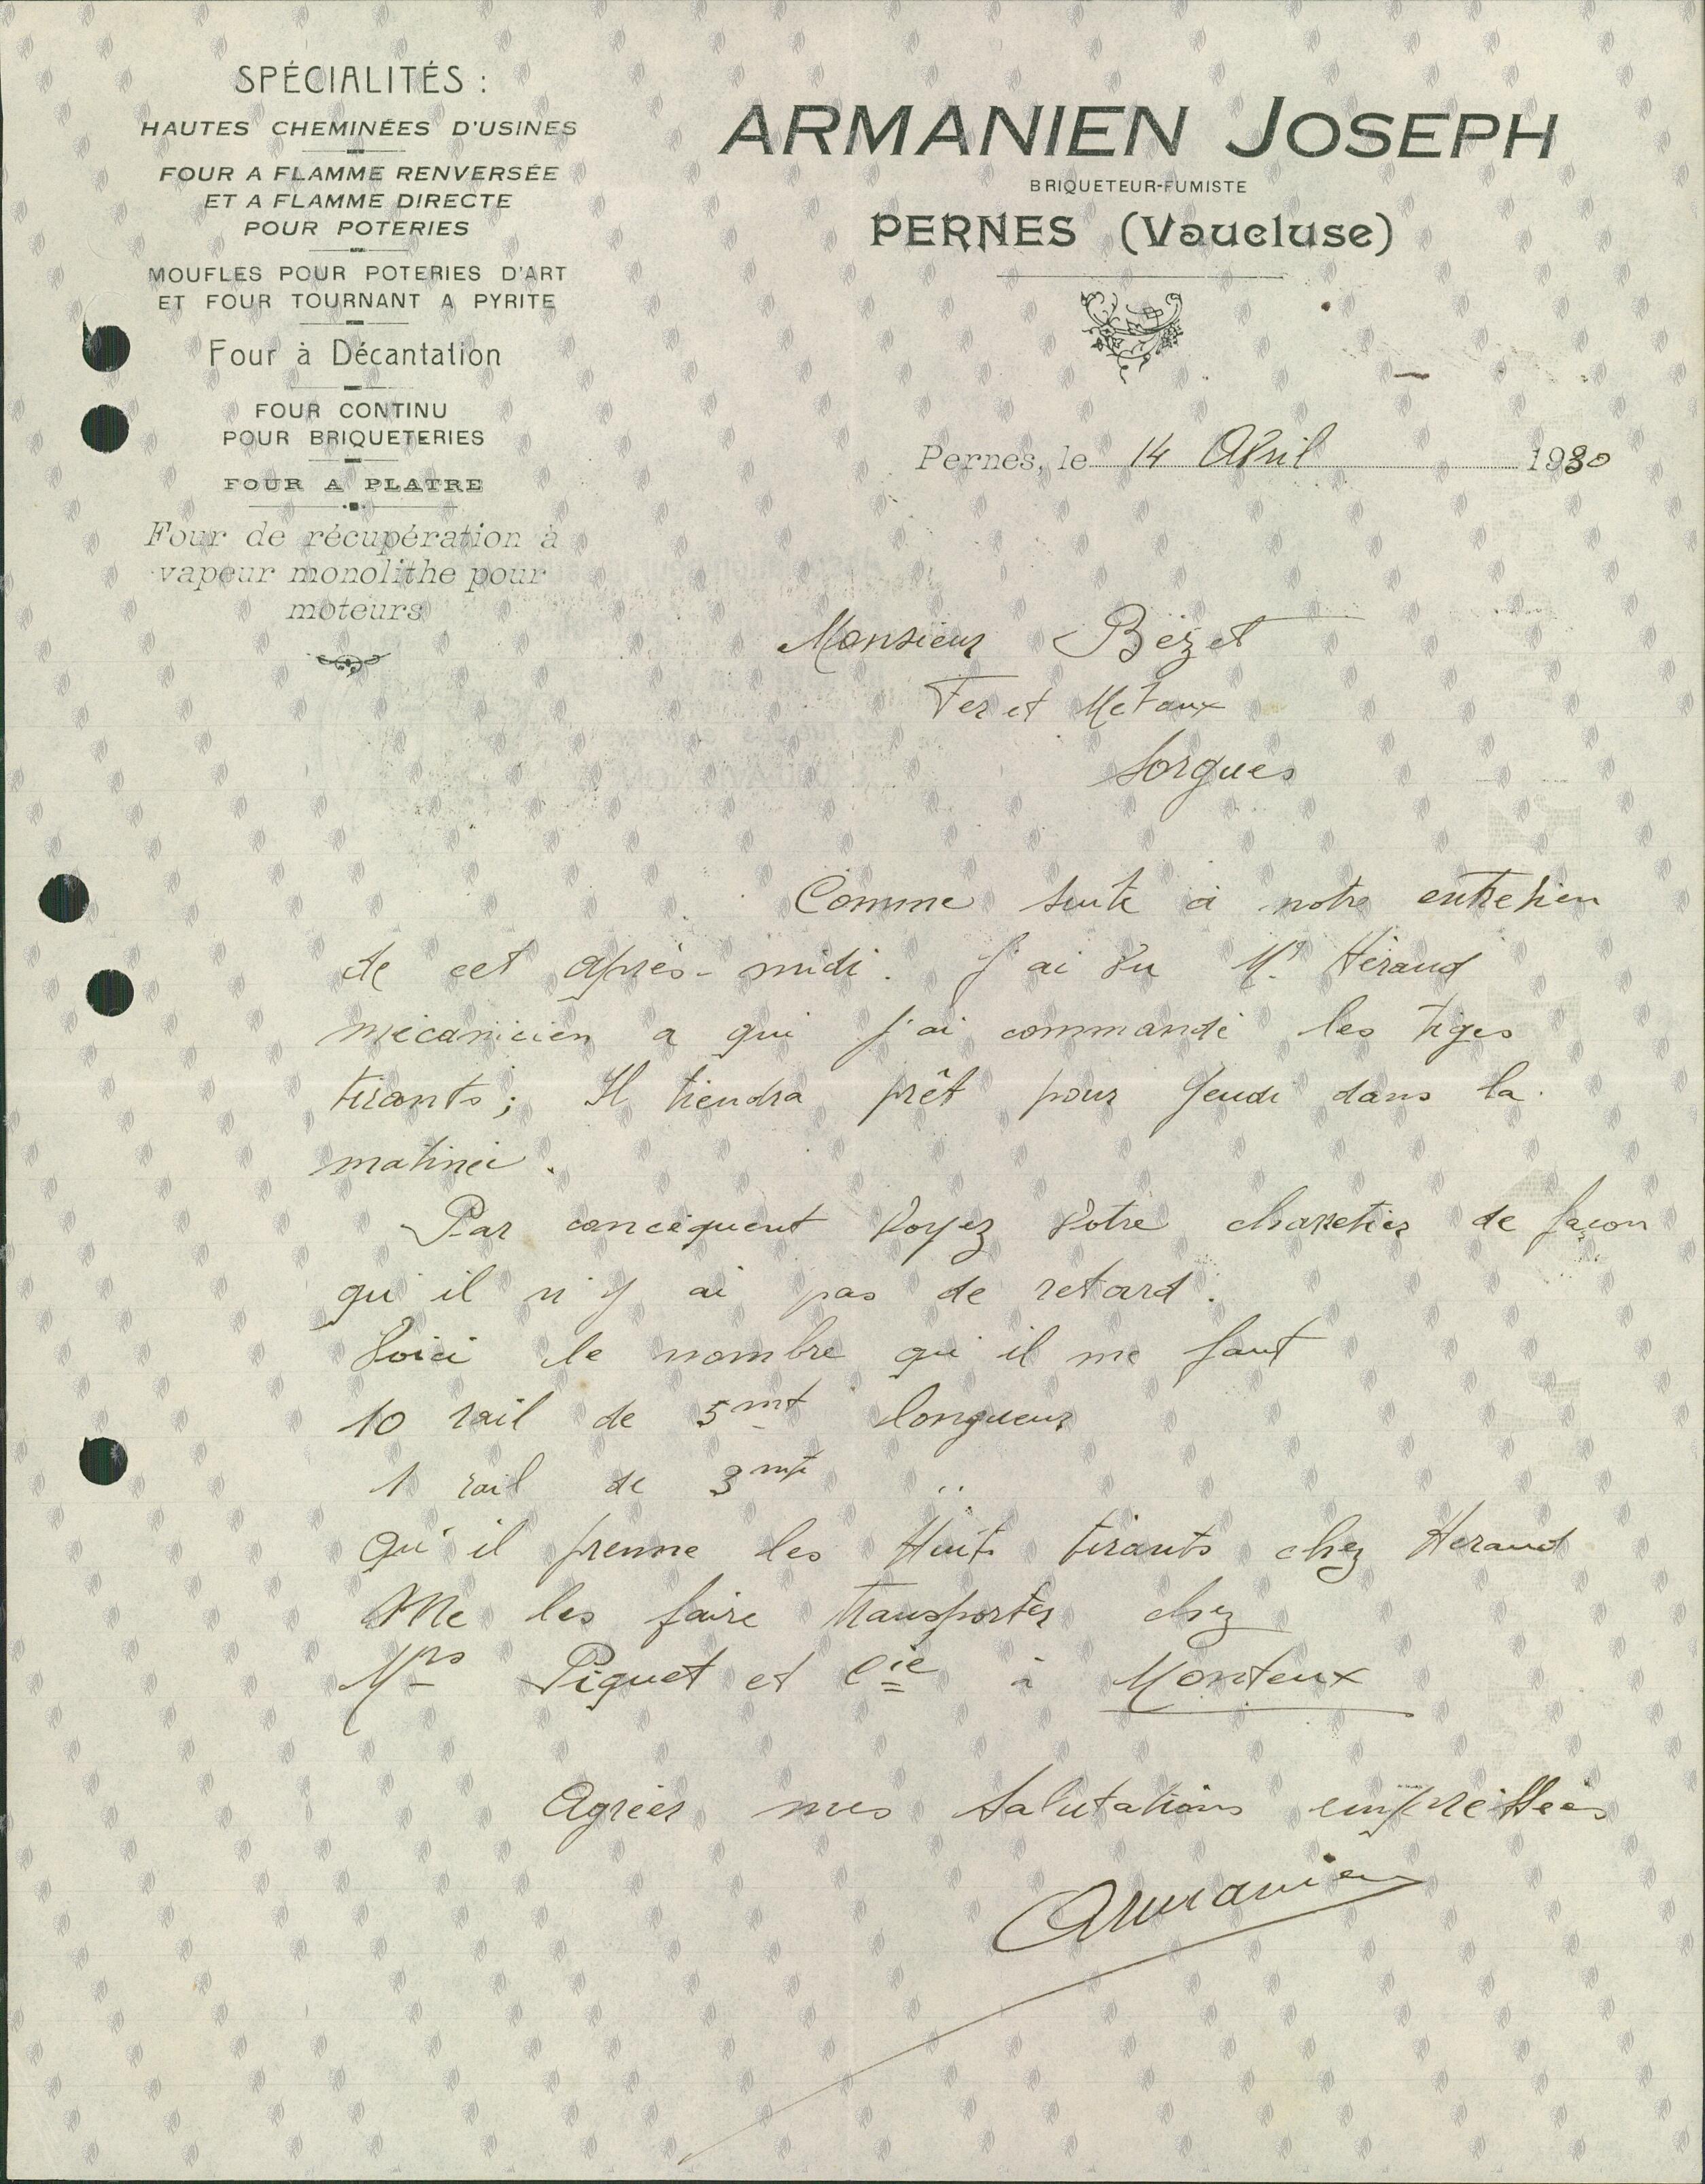 SPÉCIALITÉS :
HAUTES CHEMINÉES D'USINES
FOUR A FLAMME RENVERSÉE
ET A FLAMME DIRECTE
POUR POTERIES
MOUFLES POUR POTERIES D'ART
ET FOUR TOURNANT A PYRITE
Four à Décantation
FOUR CONTINU
POUR BRIQUETERIES
FOUR A PLATRE
Four de récupération à
vapeur monolithe pour
moteurs
ARMANIEN JOSEPH
BRIQUETEUR-FUMISTE
PERNES (Vaucluse)
Pernes, le 14 Avril 1930
Monsieur Bézet
Fer et Metaux
Sorgues
Comme suite à notre entretien
de cet après-midi. J'ai vu Mr Héraud
mécanicien a qui j'ai commandé les tiges
tirants; Il tiendra prêt pour Jeudi dans la
matinée.
Par concéquent voyez votre charretier de façon
qu'il n'y ai pas de retard.
Voici le nombre qu'il me faut
10 rail de 5mt longueur
1 rail de 3mt "
Qu'il prenne les Huits tirants chez Heraud
Me les faire transporter chez
Mrs Piquet et Cie à Monteux
Agréer mes Salutations empréssées
Armanien